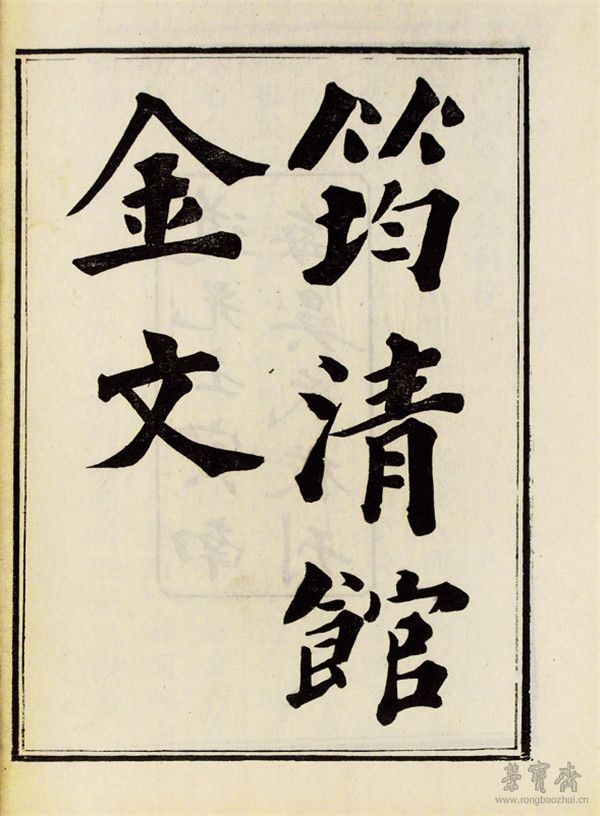 筠清館
金文
榮寶齋
www.rongbaozhai.cn